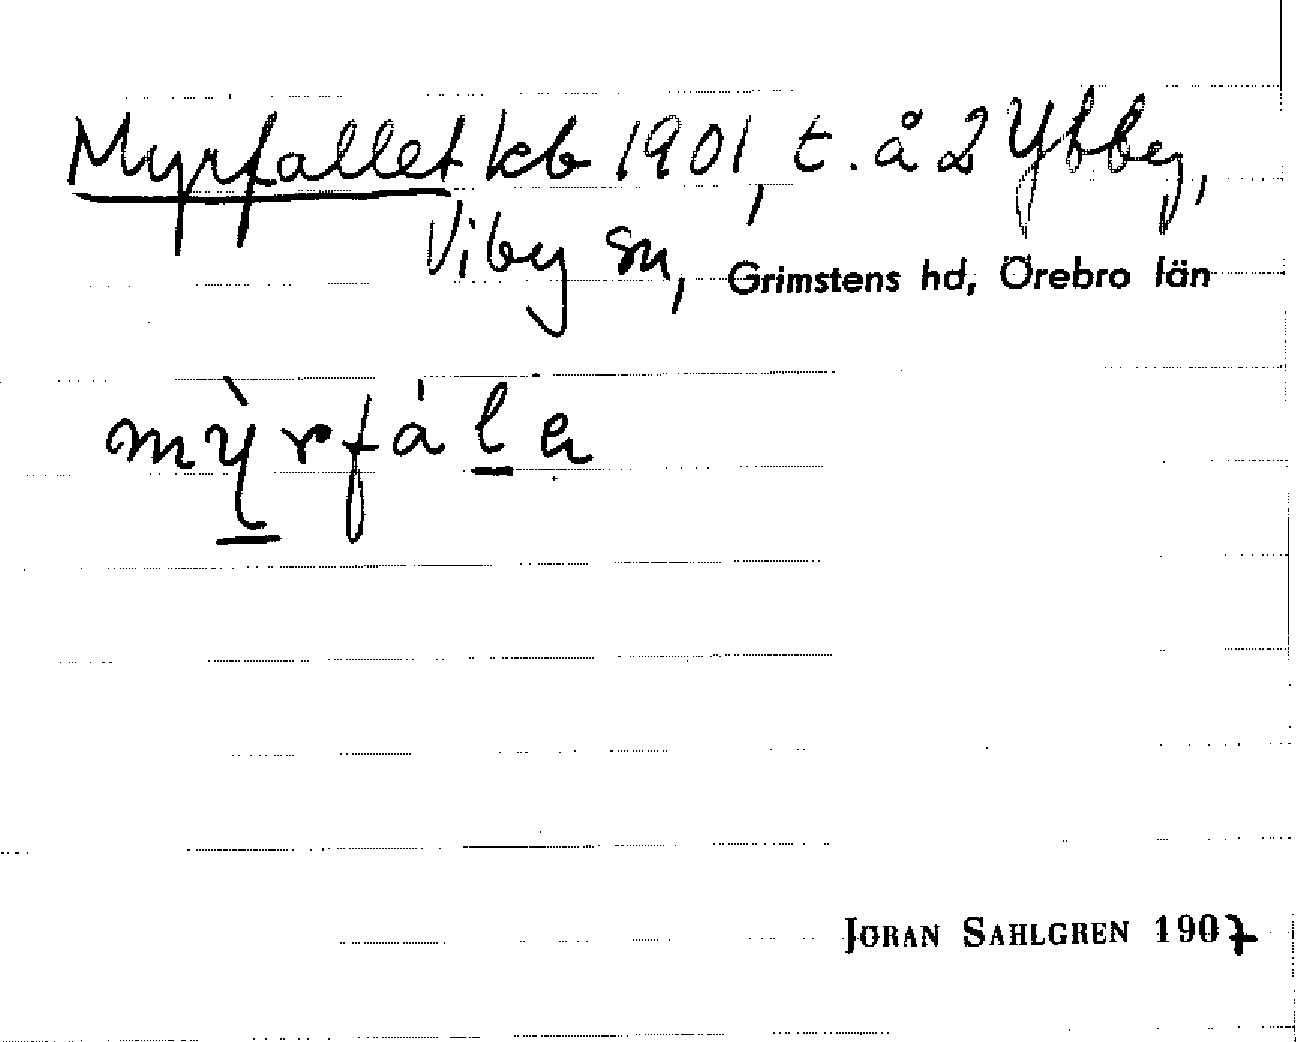 Myrfallet kb 1901, t. å 2 Ybby,
Viby sn, Grimstens hd, Örebro län
mỳrfála
JÖRAN SAHLGREN 1907